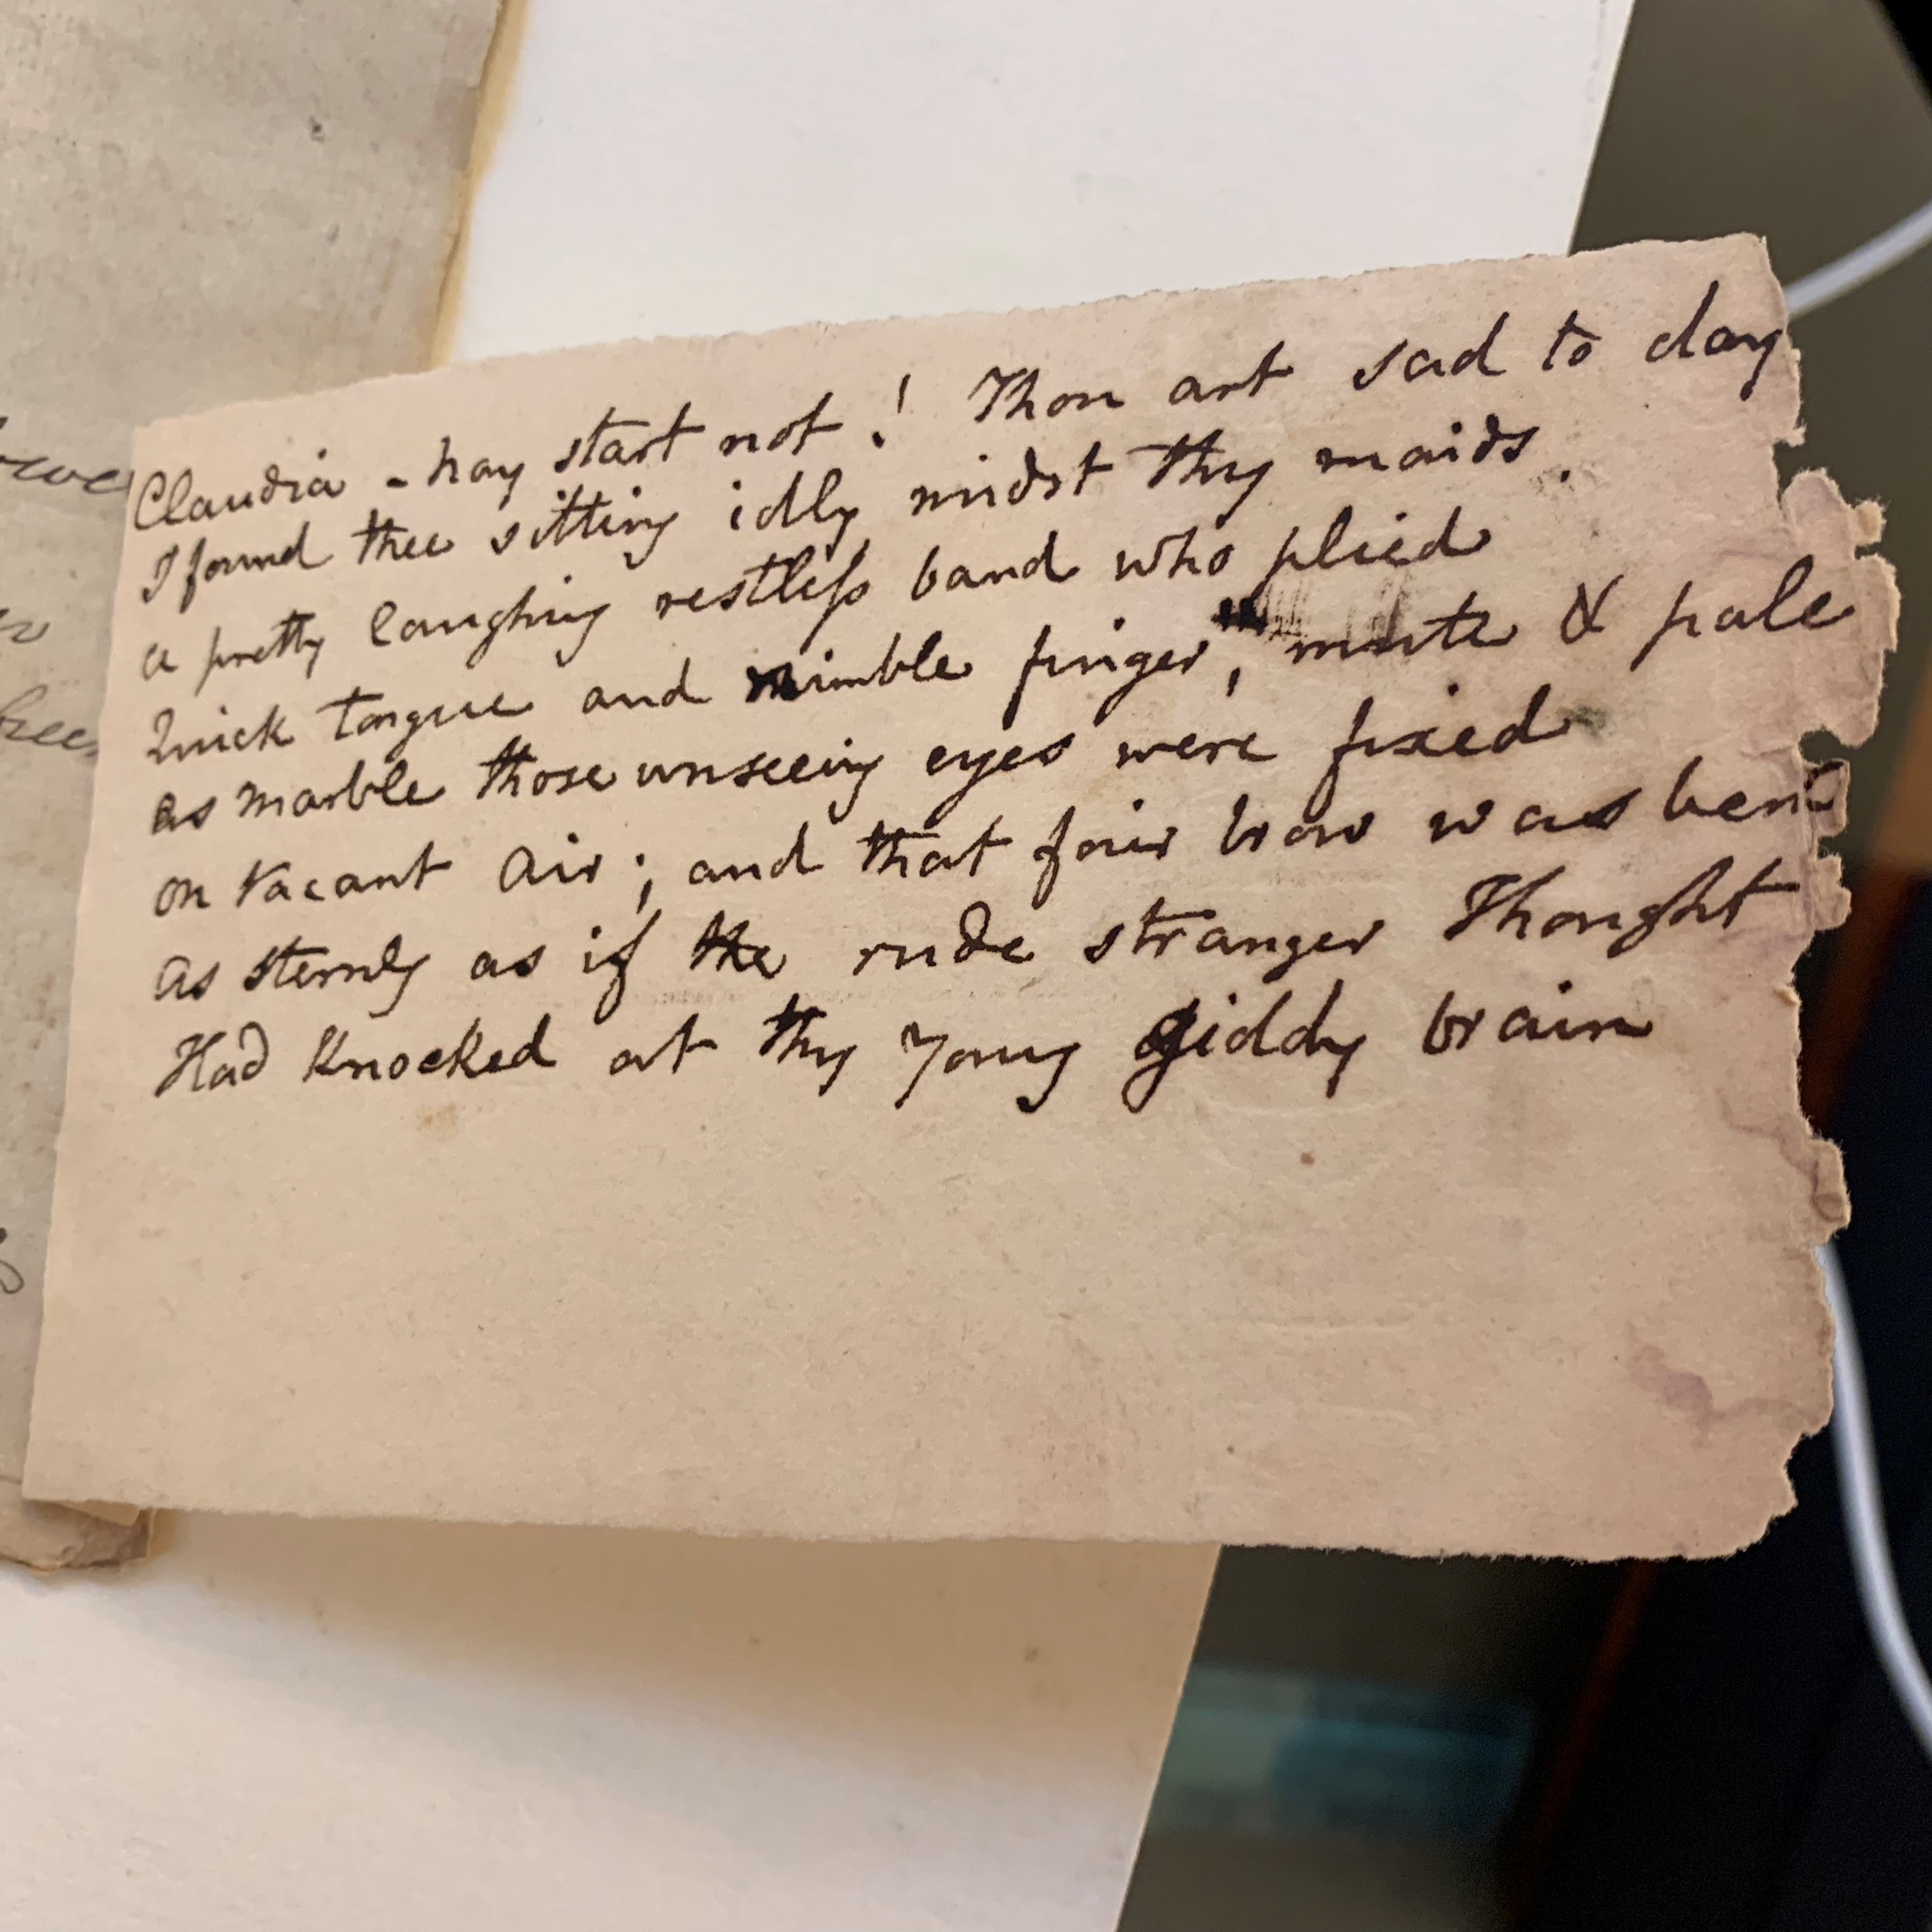 Claudia - nay start not! Thou art sad to day
I found thee sitting idly midst thy maids.
a pretty laughing restless band who plied
Quick tongue and nimble finger, mute & pale
as marble those unseeing eyes were fixed
on vacant air; and that fair brow was bent
as sternly as if the rude stranger Thought
Had knocked at thy young giddy brain